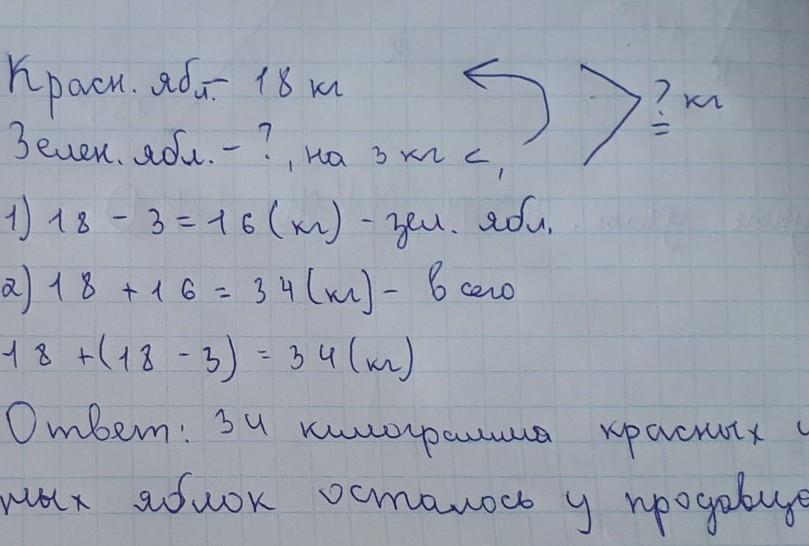 Красн. ябл. - 18 кг
? кг
Зелен. ябл. - ?, на 3 кг <,
1) 18 - 3 = 16 (кг) - зел. ябл.
2) 18 + 16 = 34 (кг) - всего
18 + (18 - 3) = 34 (кг)
Ответ: 34 килограмма красных
ных яблок осталось у продавца